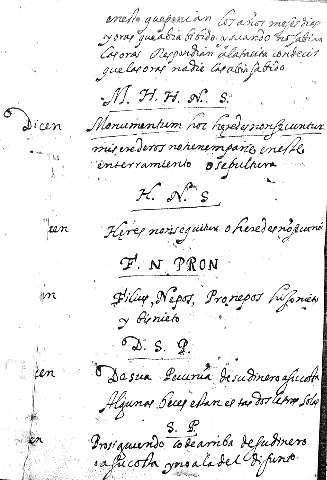 en esto que ponian los años meses dias
y oras que abia bibido, y cuando no sabian
las oras Respondian a la falta con decir
que las oras nadie las abia sabido
M. H. H. N. S.
Dicen Monumentum hoc heredes non secuntur
mis erederos no tienen parte en este
enterramiento o sepultura
H. N. S
cen Heres non sequitur o heredes no
F. N PRON
in Filius, Nepos, Pronepos hijo nieto
y bisnieto
D. S. P.
cen De sua Pecunia de su dinero a su costa
Algunas beces estan estas dos letras solas
S. P.
en Prosiguiendo lo de arriba de su dinero
o a su costa y no a la del difunto